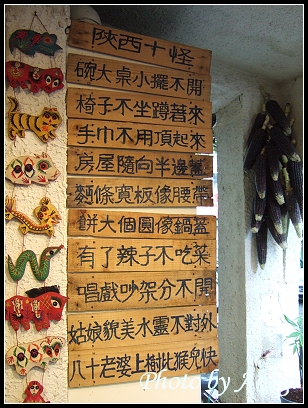 陝西十怪
碗大桌小擺不開
椅子不坐蹲著來
手巾不用頂起來
房屋隨向半邊蓋
麵條寬板像腰帶
餅大個圓像鍋蓋
有了辣子不吃菜
唱戲吵架分不開
姑娘貌美水靈不對外
八十老婆上樹比猴兒快
Photo by